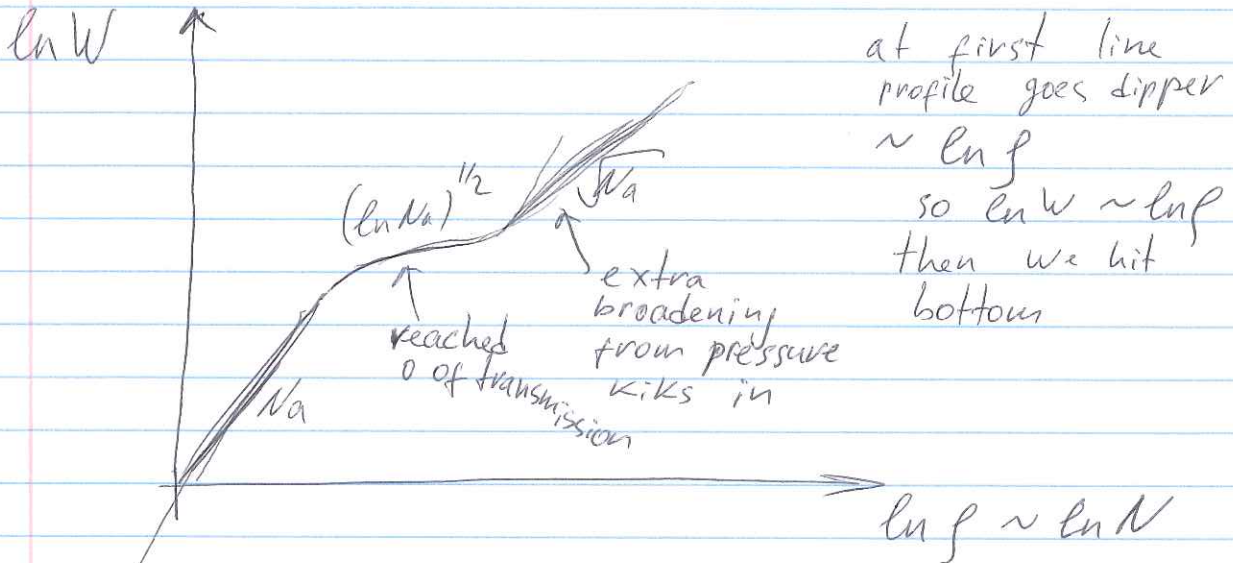 ln W
at first line
profile goes dipper
~ ln ρ
so ln W ~ ln ρ
then we hit
bottom
(ln Na)^1/2
√Na
extra
broadening
from pressure
kiks in
reached
0 of transmission
Na
ln ρ ~ ln N